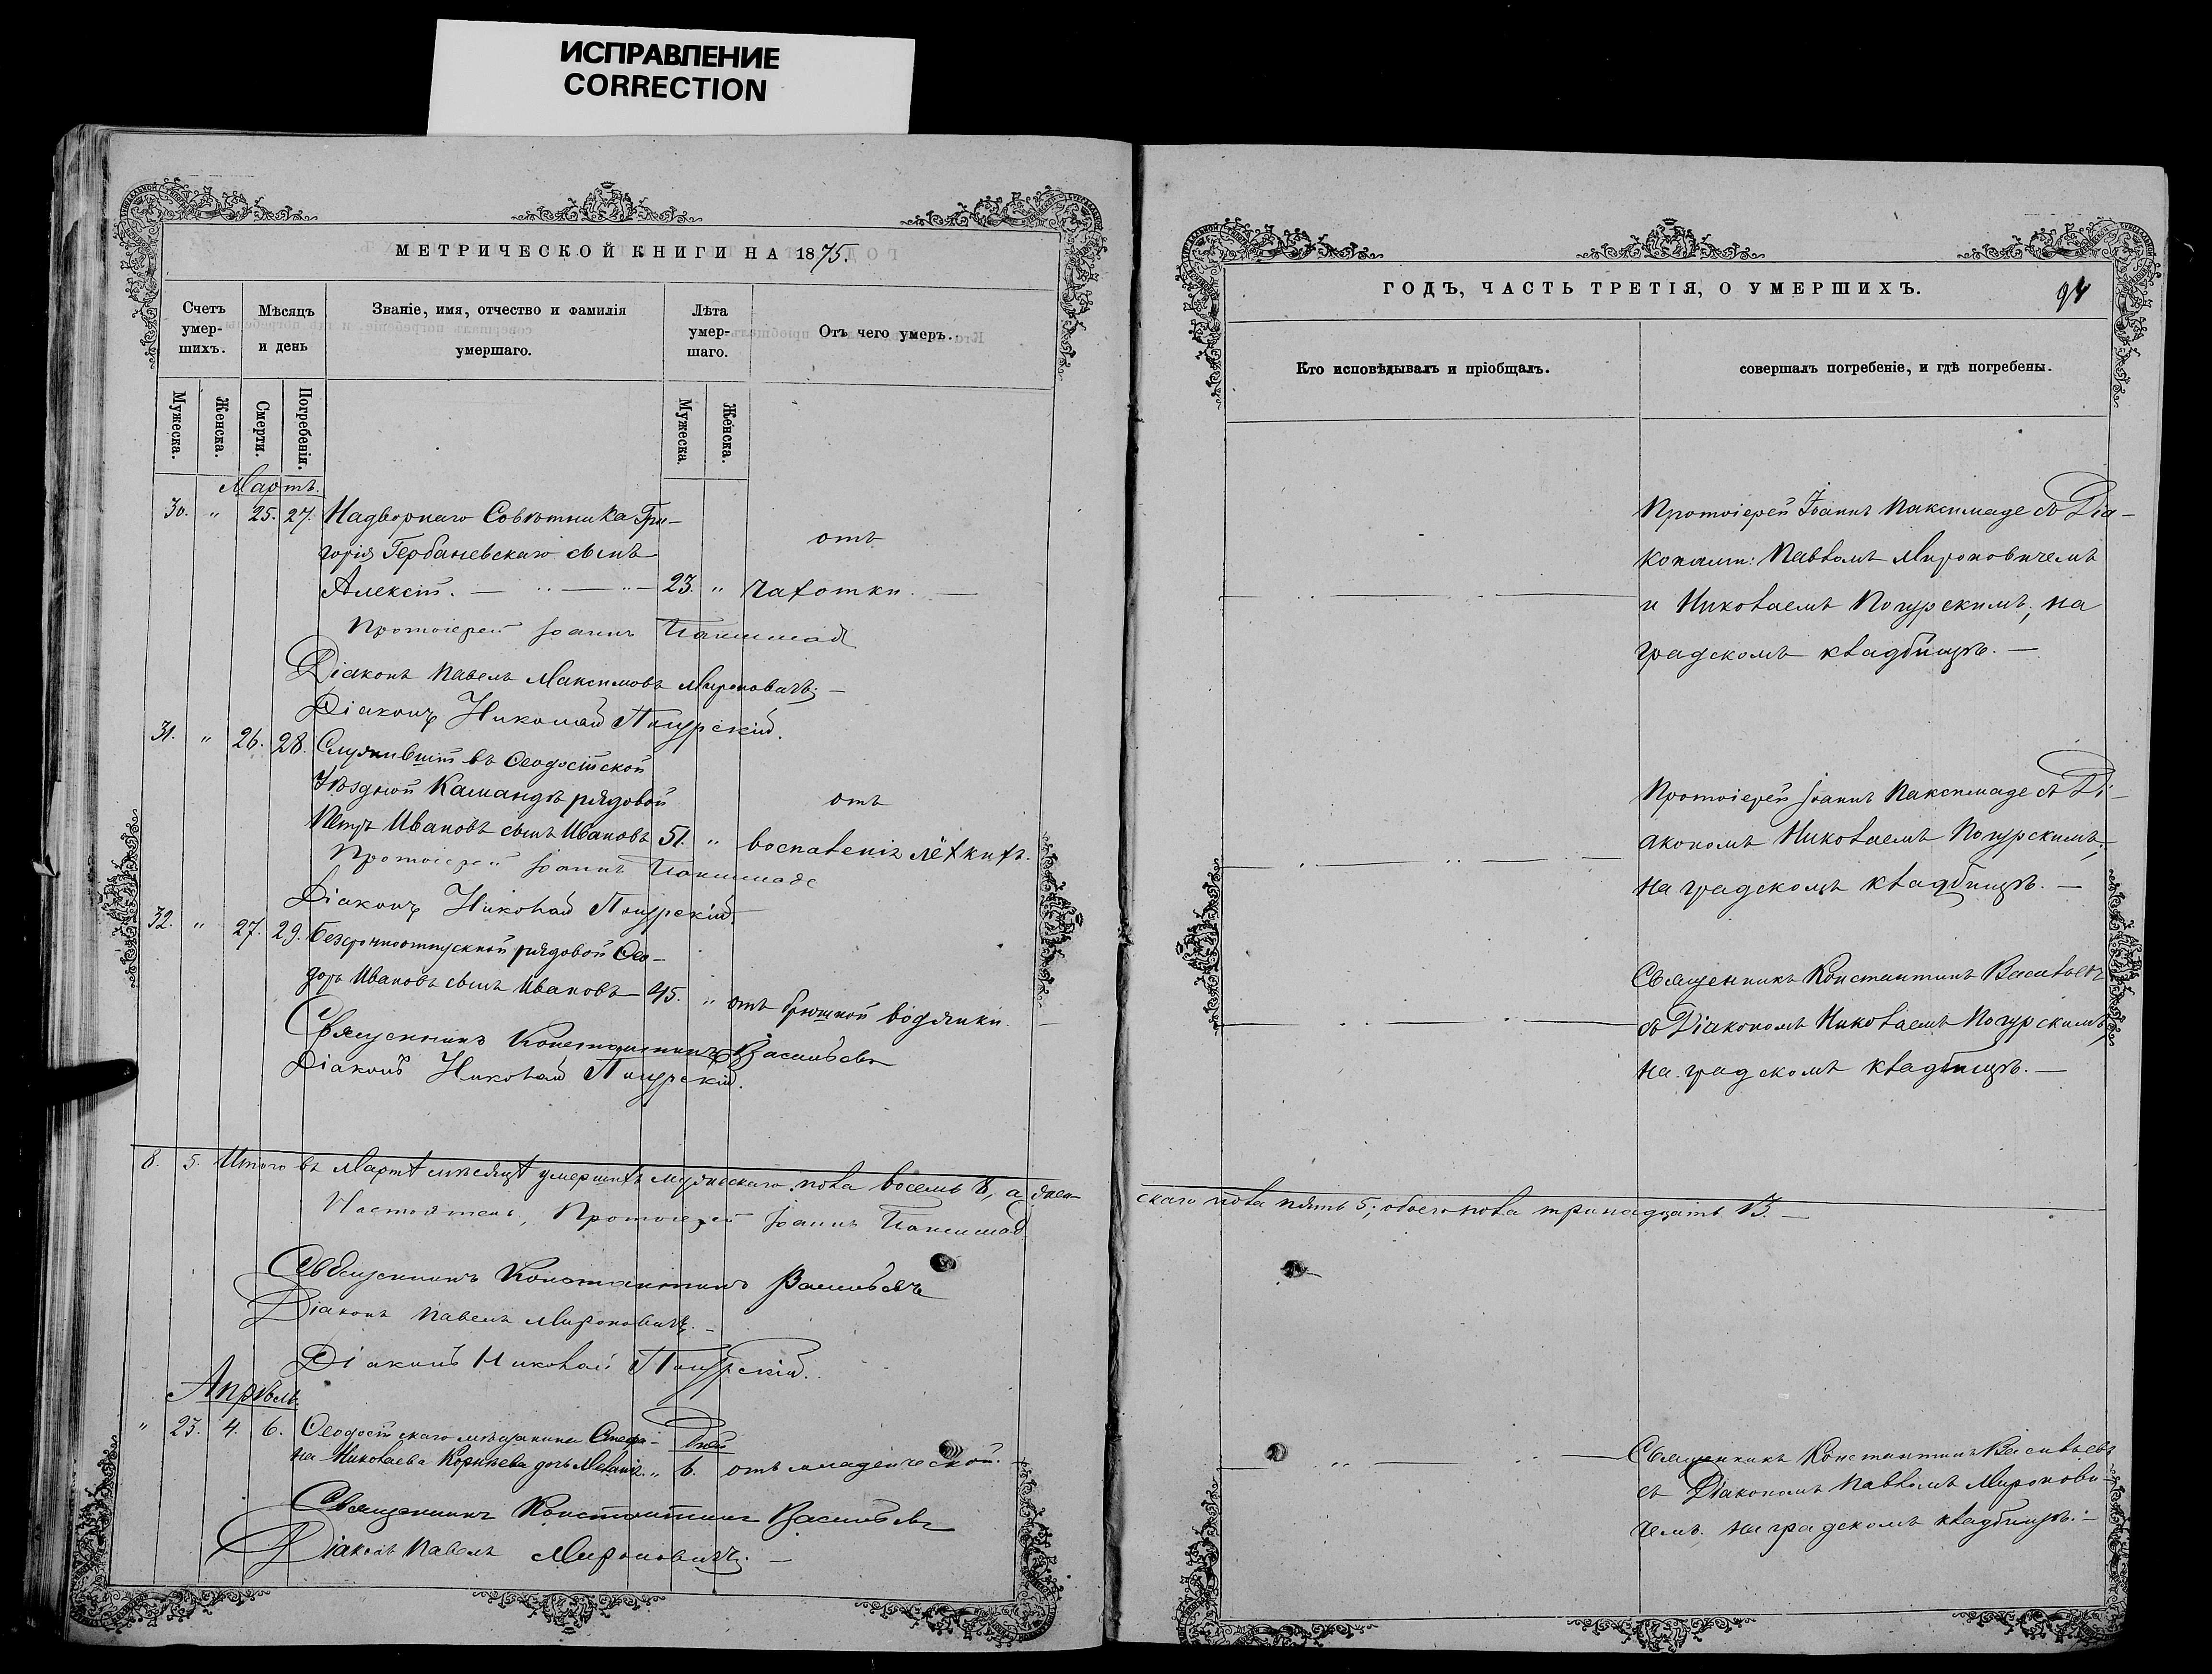 ИСПРАВЛЕНИЕ
CORRECTION
МЕТРИЧЕСКОЙ КНИГИ НА 1875.
Счетъ умер-шихъ.
Мѣсяцъ и день
Званіе, имя, отчество и фамилія умершаго.
Лѣта умер-шаго.
Отъ чего умеръ.
Мужеска.
Женска.
Смерти.
Погребенія.
Мужеска.
Женска.
Мартъ.
30. " 25. 27. Надворнаго Совѣтника Гри-
горія Гербаневскаго сынъ
отъ
Алексѣй. 23. " чахотки.
Протоіерей Іоаннъ
Діаконъ Павелъ Максимовъ Мироновичъ;
Діаконъ Николай
31. " 26. 28. Служившій въ Ѳеодосійской
Уѣздной Камандѣ рядовой
отъ
Петръ Ивановъ сынъ Ивановъ 51. " воспаленія лёхкихъ.
Протоіерей Іоаннъ
Діаконъ Николай
32. " 27. 29. Безсрочноотпускной рядовой Ѳео-
доръ Ивановъ сынъ Ивановъ 45. " отъ брюшной водянки.
Священникъ Константинъ Васильевъ
Діаконъ Николай
8. 5. Итого въ Мартѣ мѣсяцѣ умершихъ мужескаго пола восемь 8, а жен-
Настоятель, Протоіерей Іоаннъ
Священникъ Константинъ Васильевъ
Діаконъ Павелъ Мироновичъ.
Діаконъ Николай
Апрѣль.
" 23. 4. 6. Ѳеодосійскаго мѣщанина Стефа-
Дней
на Николаева Корнѣева дочь Меланія. " 6. отъ младенческой.
Священникъ Константинъ Васильевъ
Діаконъ Павелъ Мироновичъ.
ГОДЪ, ЧАСТЬ ТРЕТІЯ, О УМЕРШИХЪ.
94
Кто исповѣдывалъ и пріобщалъ.
совершалъ погребеніе, и гдѣ погребены.
Протоіерей Іоаннъ Паксимаде съ Діа-
конами: Павломъ Мироновичемъ
и Николаемъ Погурскимъ; на
градскомъ кладбищѣ.
Протоіерей Іоаннъ Паксимаде съ Ді-
акономъ Николаемъ Погурскимъ;
на градскомъ кладбищѣ.
Священникъ Константинъ Васильевъ
съ Діакономъ Николаемъ Погурскимъ,
на градскомъ кладбищѣ.
скаго пола пять 5; обоего пола тринадцать 13.
Священникъ Константинъ Васильевъ
съ Діакономъ Павломъ Миронови-
чемъ. на градскомъ кладбищѣ.